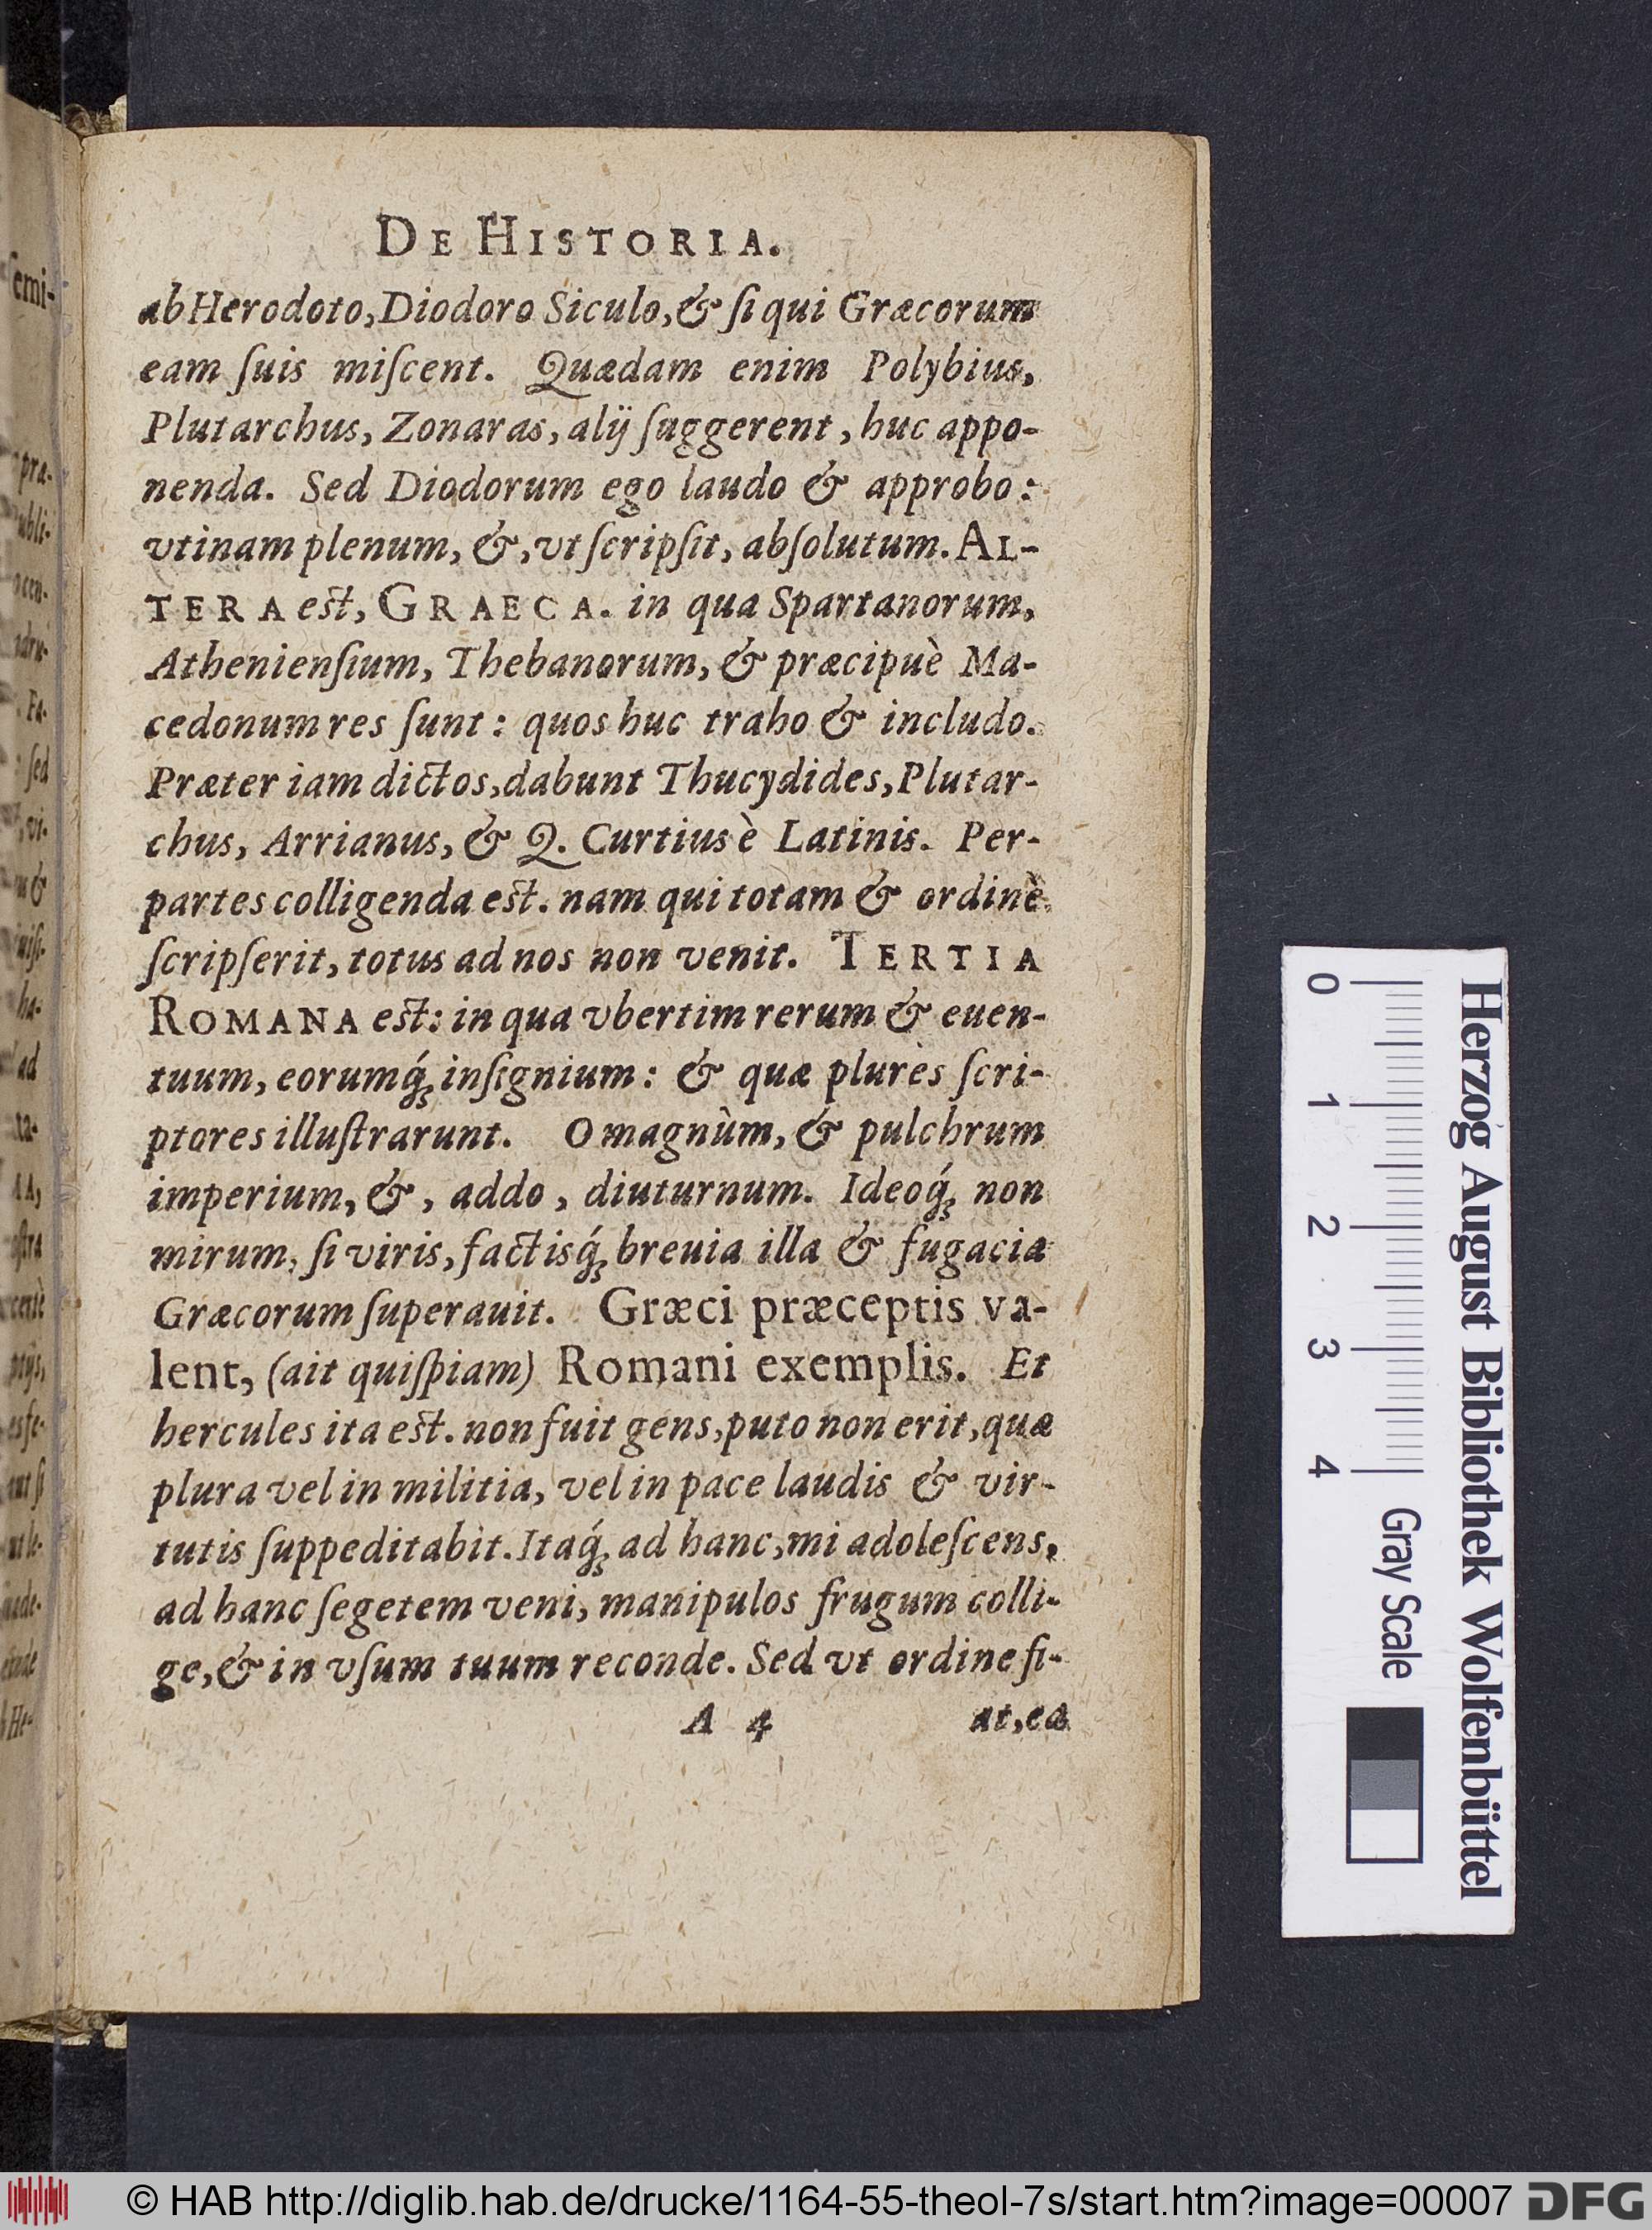 DE HISTORIA.
ab Herodoto, Diodoro Siculo, & ſi qui Græcorum
eam ſuis miſcent. Quædam enim Polybius,
Plutarchus, Zonaras, alij ſuggerent, huc appo-
nenda. Sed Diodorum ego laudo & approbo:
vtinam plenum, &, vt ſcripſit, abſolutum. AL-
TERA est, GRAECA. in qua Spartanorum,
Athenienſium, Thebanorum, & præcipuè Ma-
cedonum res ſunt: quos huc traho & includo.
Præter iam dictos, dabunt Thucydides, Plutar-
chus, Arrianus, & Q. Curtius è Latinis. Per-
partes colligenda est. nam qui totam & ordinè
ſcripſerit, totus ad nos non venit. TERTIA
ROMANA est: in qua vbertim rerum & euen-
tuum, eorumq́; inſignium: & quæ plurès ſcri-
ptores illuſtrarunt. O magnùm, & pulchrum
imperium, &, addo, diuturnum. Ideoq́; non
mirum, ſi viris, factisq́; breuia illa & fugacia
Græcorum ſuperauit. Græci præceptis va-
lent, (ait quiſpiam) Romani exemplis. Et
hercules ita est. non fuit gens, puto non erit, quæ
plura vel in militia, vel in pace laudis & vir-
tutis ſuppeditabit. Itaq́; ad hanc, mi adoleſcens,
ad hanc ſegetem veni, manipulos frugum colli-
ge, & in vſum tuum reconde. Sed vt ordine fi-
A 4 at, ea
Herzog August Bibliothek Wolfenbüttel
0 1 2 3 4 Gray Scale
© HAB http://diglib.hab.de/drucke/1164-55-theol-7s/start.htm?image=00007 DFG